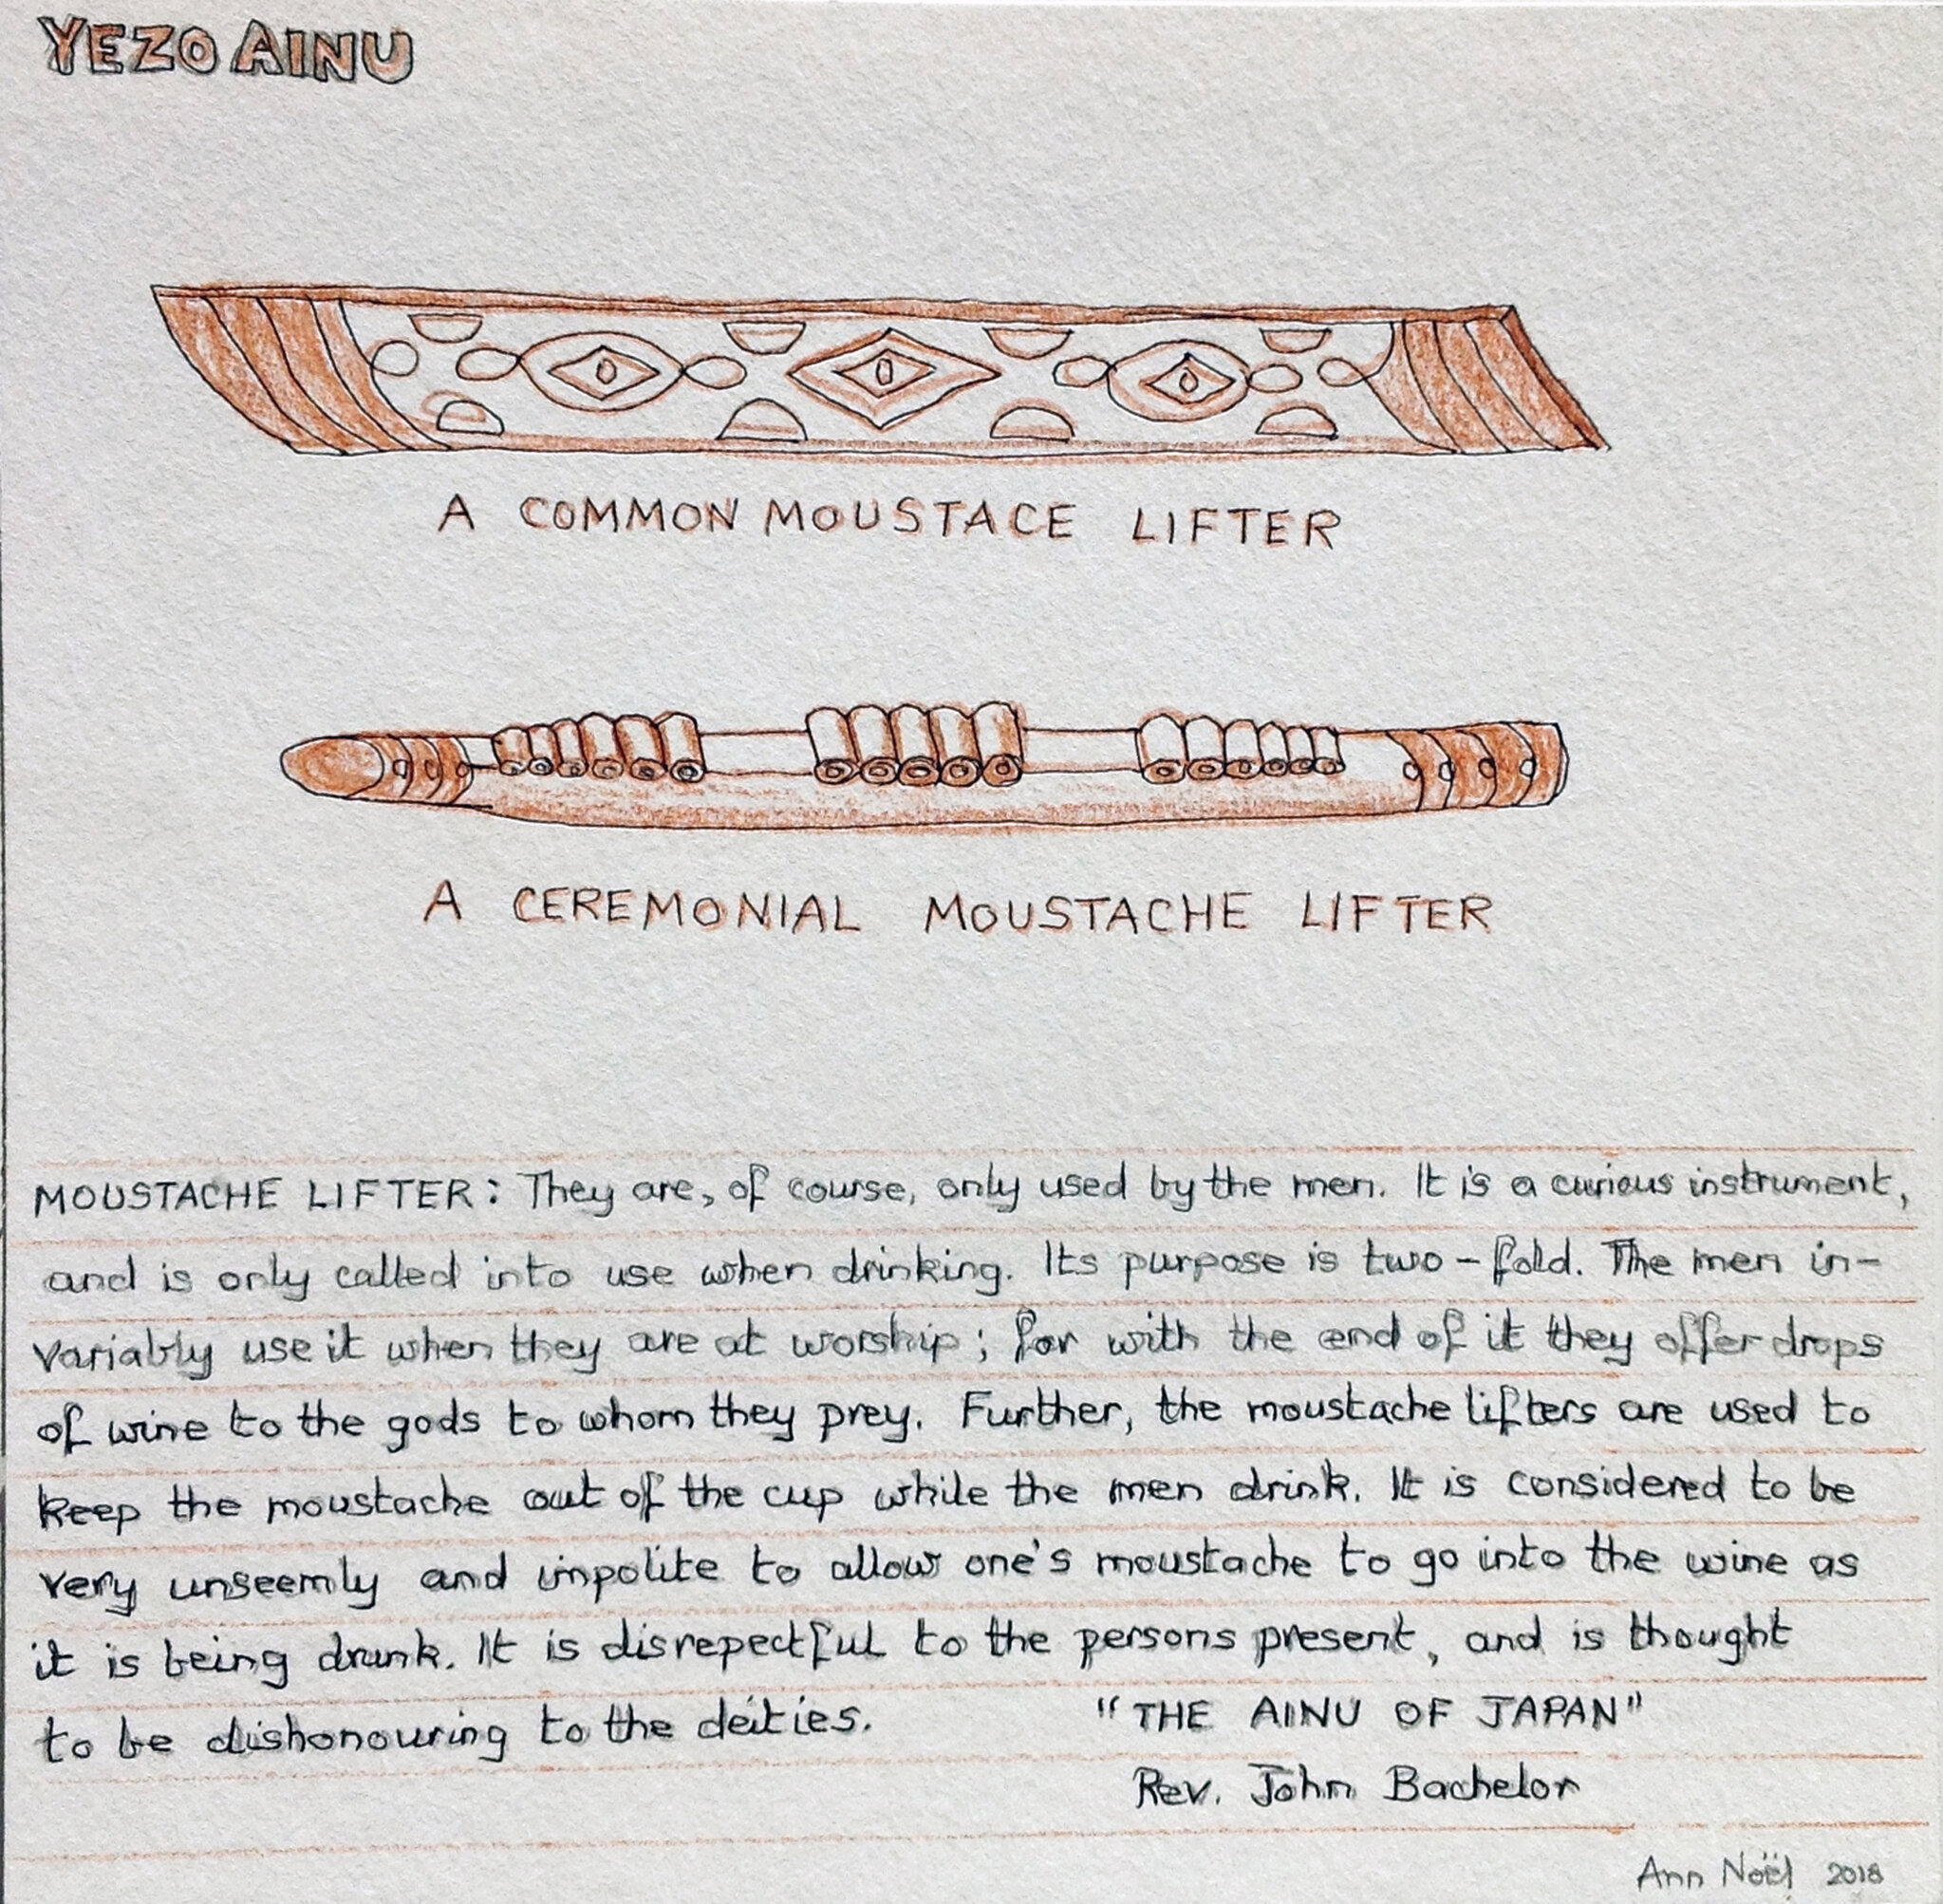 YEZO AINU
A COMMON MOUSTACE LIFTER
A CEREMONIAL MOUSTACHE LIFTER
MOUSTACHE LIFTER: They are, of course, only used by the men. It is a curious instrument,
and is only called into use when drinking. Its purpose is two-fold. The men in-
variably use it when they are at worship; for with the end of it they offer drops
of wine to the gods to whom they prey. Further, the moustache lifters are used to
keep the moustache out of the cup while the men drink. It is considered to be
very unseemly and impolite to allow one's moustache to go into the wine as
it is being drunk. It is disrepectful to the persons present, and is thought
to be dishonouring to the deities. "THE AINU OF JAPAN"
Rev. John Bachelor
Ann Noël 2018